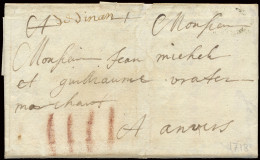 de dinan
Monsieur
Monsieur Jean michel
et guilliaume vrater
marchans
A anvers